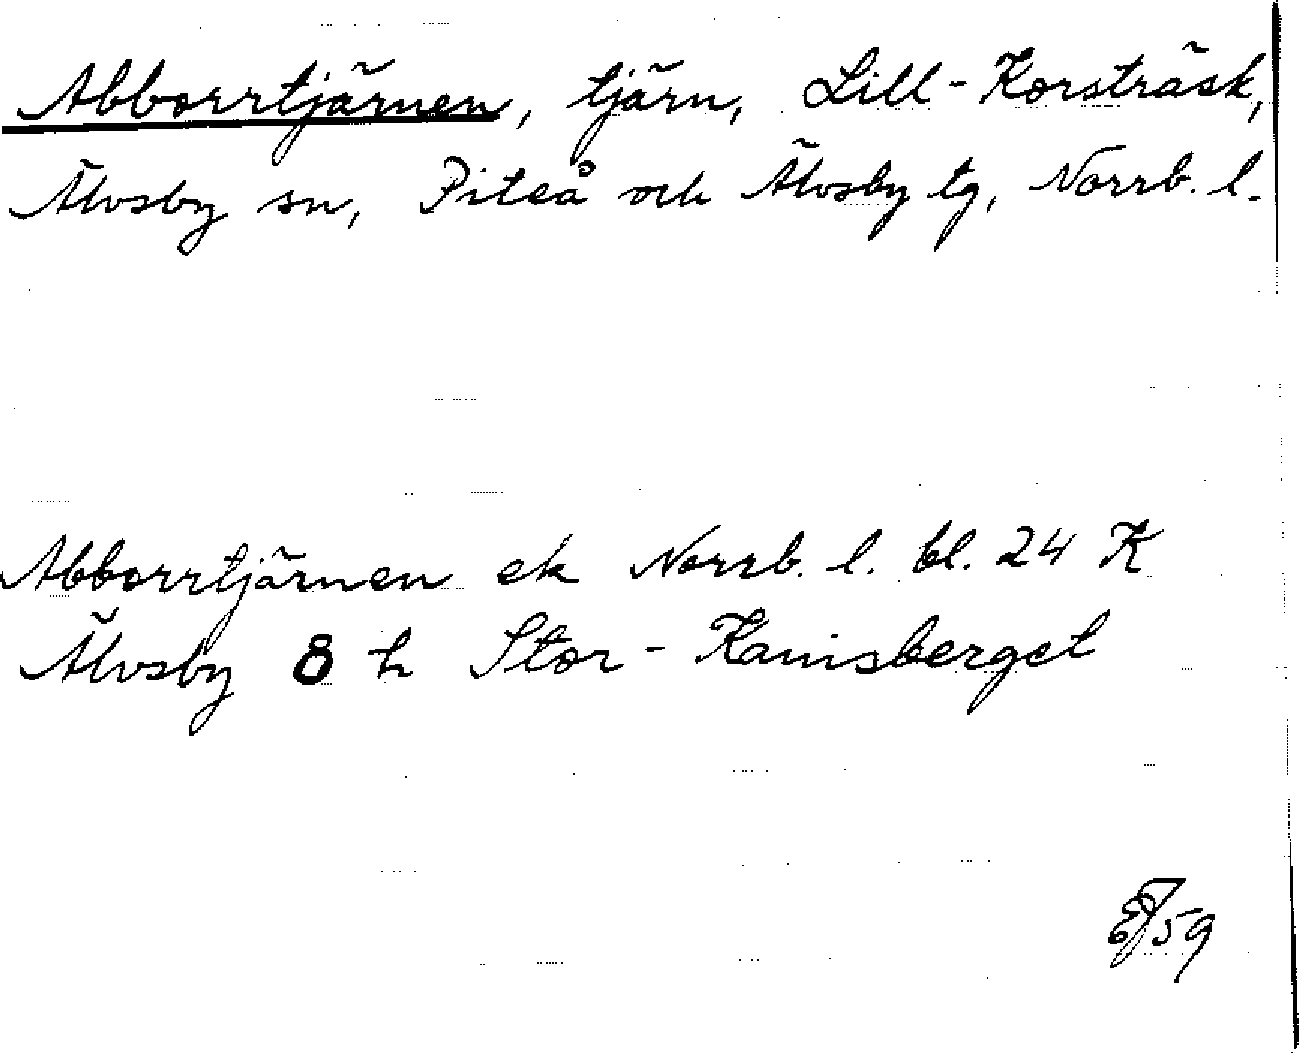 Abborrtjärnen, tjärn, Lill-Korsträsk,
Älvsby sn, Piteå och Älvsby tg, Norrb. l.
Abborrtjärnen ek Norrb. l. bl. 24 K
Älvsby 8 h Stor-Kanisberget
59